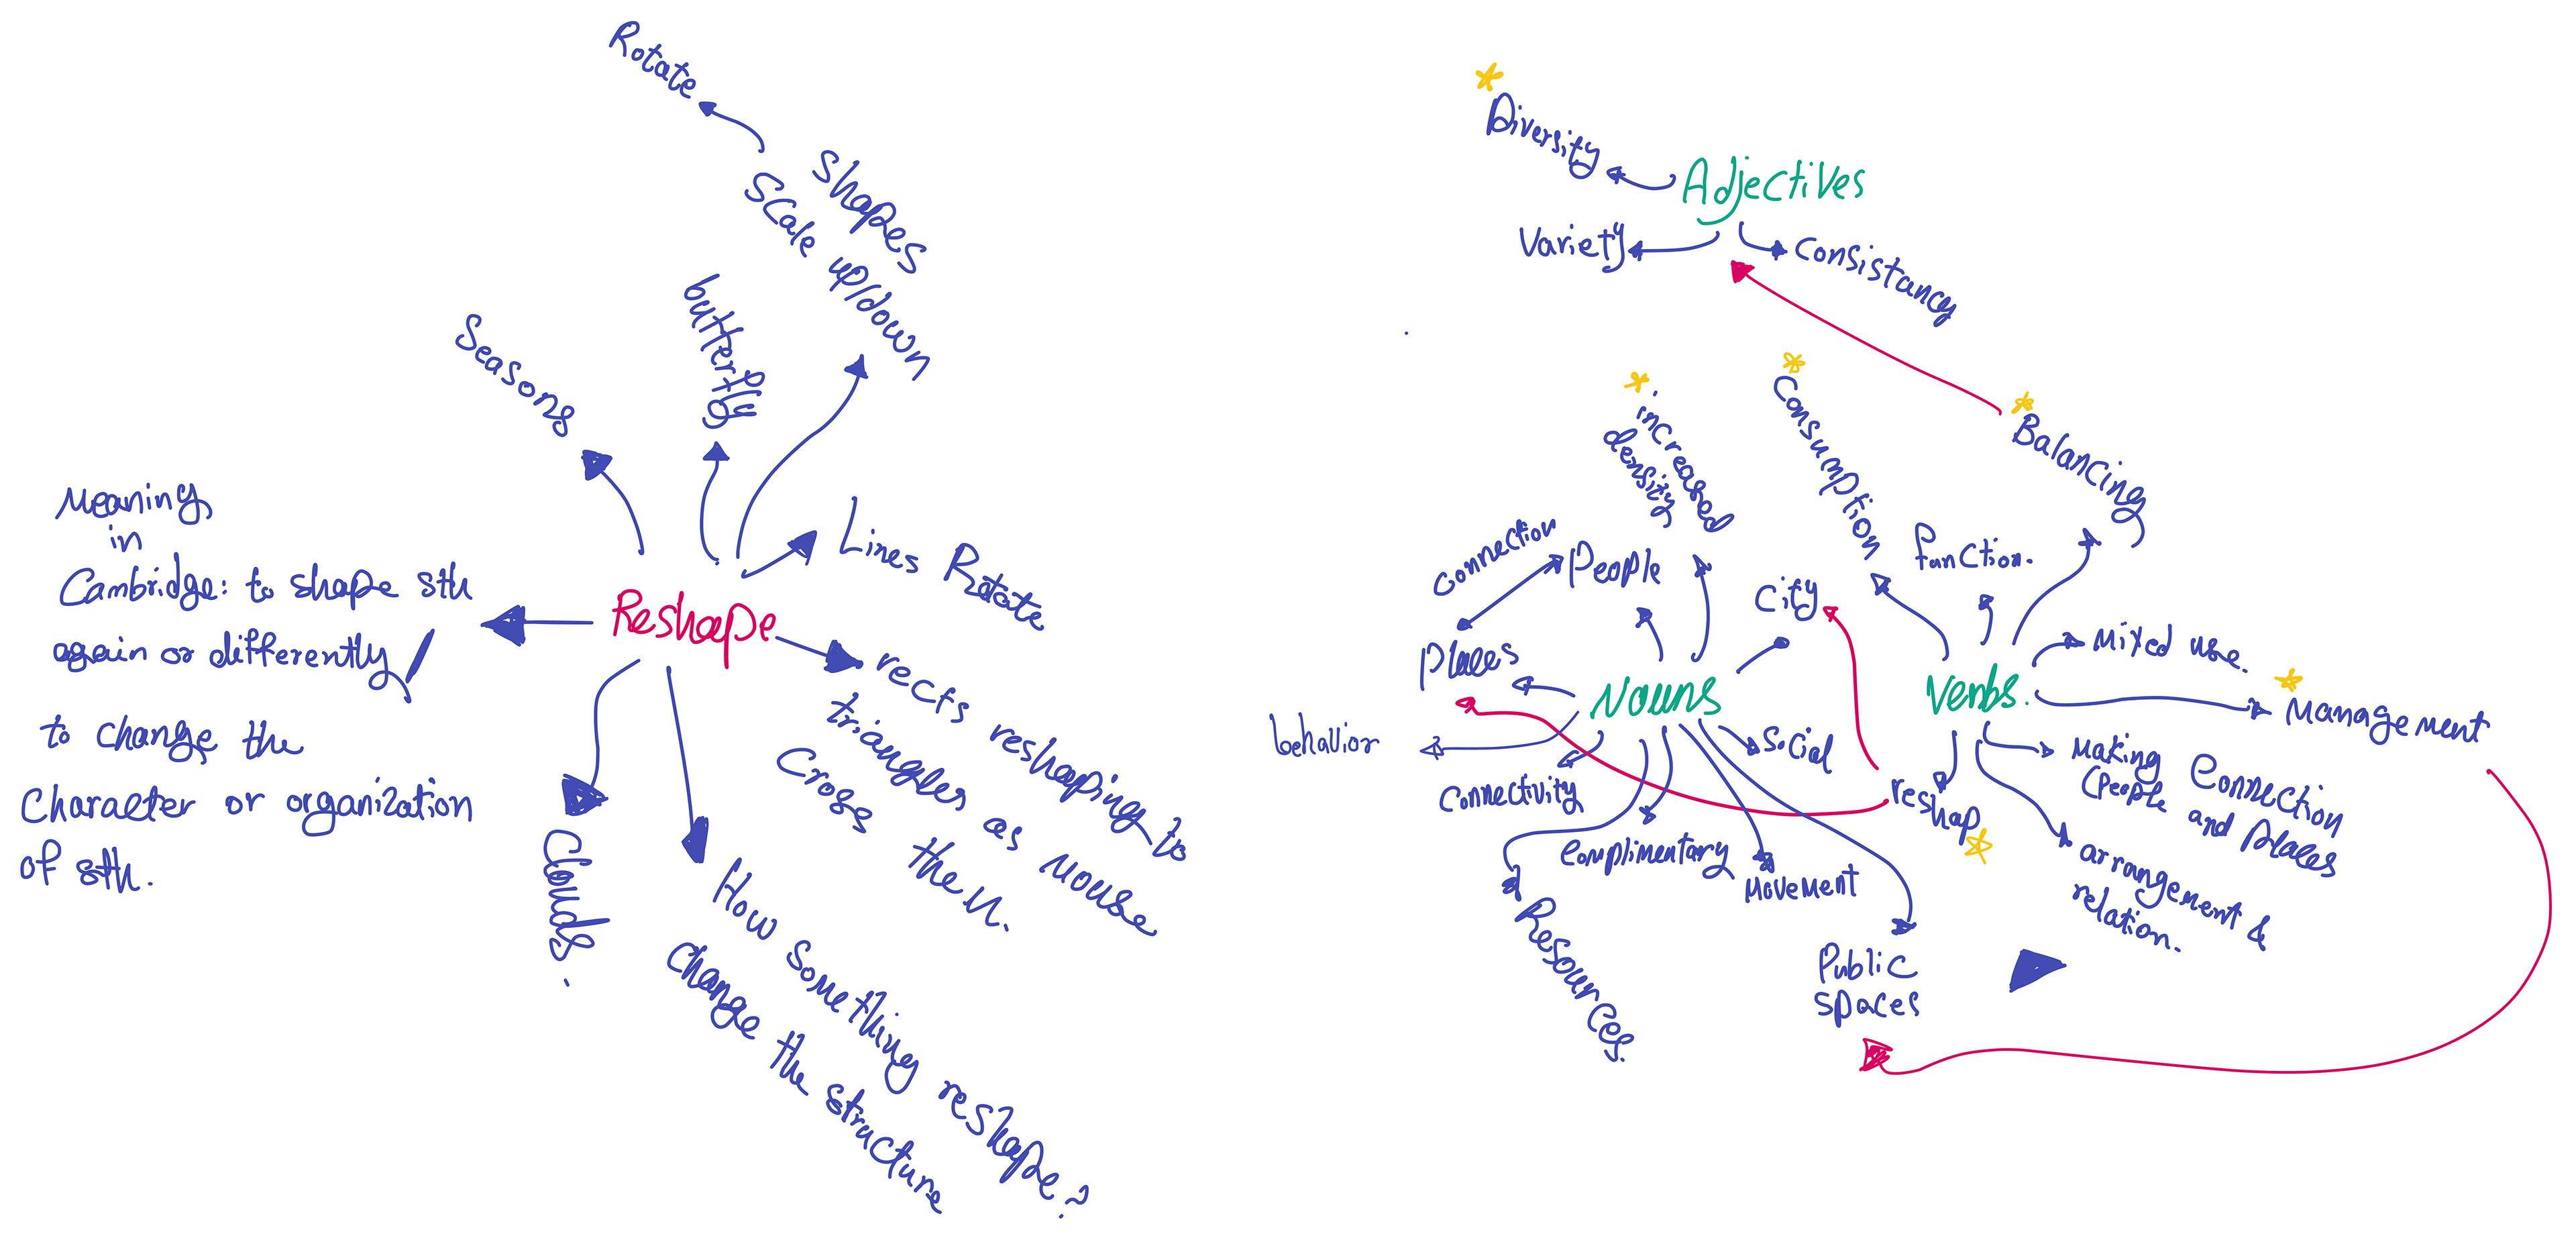 Rotate
Shapes
Scale up/down
butterfly
Seasons
Lines Rotate
Meaning
in
Cambridge: to shape sth
again or differently/
to change the
Character or organization
of sth.
Reshape
rects reshaping to
triangles as mouse
Cross them.
Clouds.
How Something reshape?
Change the structure
Diversity
Adjectives
Variety
Consistancy
increased
density
Consumption
Balancing
function.
Connection
People
City
Places
Mixed use.
Nouns
Verbs.
Management
behavior
Social
Connectivity
Making Connection
(People and Places
reshap
Complimentary
Movement
arrangement &
relation.
Resources.
Public
spaces